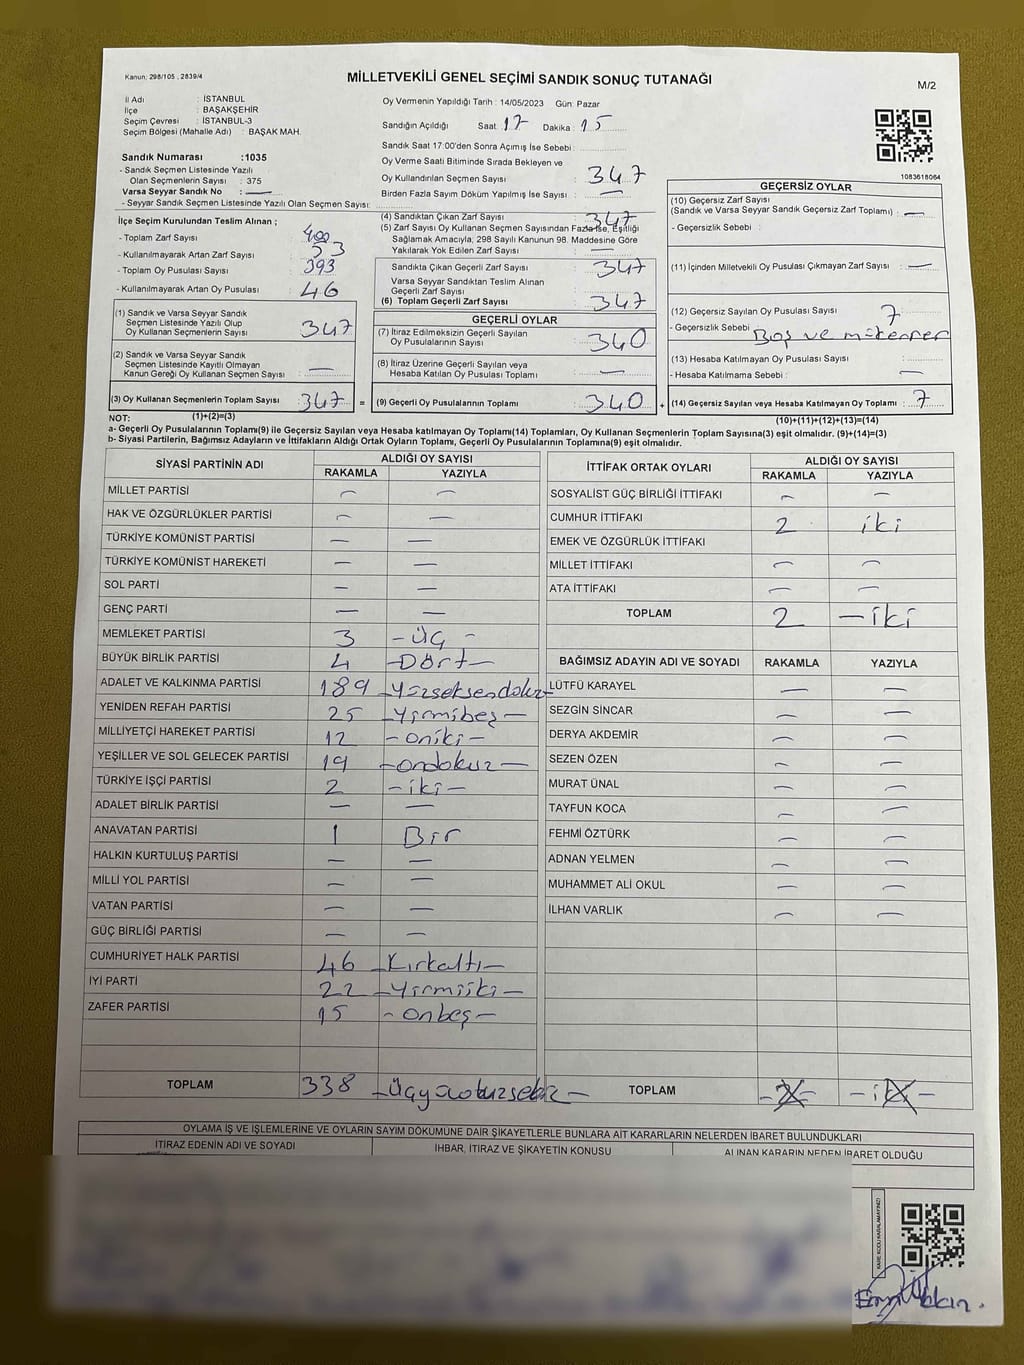 Kanun; 298/105 , 2839/4
MİLLETVEKİLİ GENEL SEÇİMİ SANDIK SONUÇ TUTANAĞI
M/2
İl Adı : İSTANBUL
İlçe : BAŞAKŞEHİR
Seçim Çevresi : İSTANBUL-3
Seçim Bölgesi (Mahalle Adı) : BAŞAK MAH.
Sandık Numarası :1035
- Sandık Seçmen Listesinde Yazılı
Olan Seçmenlerin Sayısı : 375
Varsa Seyyar Sandık No : —
- Seyyar Sandık Seçmen Listesinde Yazılı Olan Seçmen Sayısı:
Oy Vermenin Yapıldığı Tarih : 14/05/2023 Gün: Pazar
Sandığın Açıldığı Saat 17 Dakika : 15
Sandık Saat 17:00'den Sonra Açımış İse Sebebi :
Oy Verme Saati Bitiminde Sırada Bekleyen ve
Oy Kullandırılan Seçmen Sayısı : 347
Birden Fazla Sayım Döküm Yapılmış İse Sayısı : —
1083618064
İlçe Seçim Kurulundan Teslim Alınan ;
- Toplam Zarf Sayısı : 400
- Kullanılmayarak Artan Zarf Sayısı : 53
- Toplam Oy Pusulası Sayısı : 393
- Kullanılmayarak Artan Oy Pusulası : 46
(1) Sandık ve Varsa Seyyar Sandık
Seçmen Listesinde Yazılı Olup
Oy Kullanan Seçmenlerin Sayısı : 347
(2) Sandık ve Varsa Seyyar Sandık
Seçmen Listesinde Kayıtlı Olmayan
Kanun Gereği Oy Kullanan Seçmen Sayısı : —
(3) Oy Kullanan Seçmenlerin Toplam Sayısı : 347 =
(4) Sandıktan Çıkan Zarf Sayısı : 347
(5) Zarf Sayısı Oy Kullanan Seçmen Sayısından Fazla İse, Eşitliği
Sağlamak Amacıyla; 298 Sayılı Kanunun 98. Maddesine Göre
Yakılarak Yok Edilen Zarf Sayısı : —
Sandıkta Çıkan Geçerli Zarf Sayısı : 347
Varsa Seyyar Sandıktan Teslim Alınan
Geçerli Zarf Sayısı :
(6) Toplam Geçerli Zarf Sayısı : 347
GEÇERLİ OYLAR
(7) İtiraz Edilmeksizin Geçerli Sayılan
Oy Pusulalarının Sayısı : 340
(8) İtiraz Üzerine Geçerli Sayılan veya
Hesaba Katılan Oy Pusulası Toplamı : —
(9) Geçerli Oy Pusulalarının Toplamı : 340 +
GEÇERSİZ OYLAR
(10) Geçersiz Zarf Sayısı
(Sandık ve Varsa Seyyar Sandık Geçersiz Zarf Toplamı) : —
- Geçersizlik Sebebi :
(11) İçinden Milletvekili Oy Pusulası Çıkmayan Zarf Sayısı : —
(12) Geçersiz Sayılan Oy Pusulası Sayısı : 7
- Geçersizlik Sebebi : Boş ve mükerrer
(13) Hesaba Katılmayan Oy Pusulası Sayısı :
- Hesaba Katılmama Sebebi : —
(14) Geçersiz Sayılan veya Hesaba Katılmayan Oy Toplamı : 7
NOT: (1)+(2)=(3) (10)+(11)+(12)+(13)=(14)
a- Geçerli Oy Pusulalarının Toplamı(9) ile Geçersiz Sayılan veya Hesaba katılmayan Oy Toplamı(14) Toplamları, Oy Kullanan Seçmenlerin Toplam Sayısına(3) eşit olmalıdır. (9)+(14)=(3)
b- Siyasi Partilerin, Bağımsız Adayların ve İttifakların Aldığı Ortak Oyların Toplamı, Geçerli Oy Pusulalarının Toplamına(9) eşit olmalıdır.
SİYASİ PARTİNİN ADI ALDIĞI OY SAYISI
RAKAMLA YAZIYLA
MİLLET PARTİSİ — —
HAK VE ÖZGÜRLÜKLER PARTİSİ — —
TÜRKİYE KOMÜNİST PARTİSİ — —
TÜRKİYE KOMÜNİST HAREKETİ — —
SOL PARTİ — —
GENÇ PARTİ — —
MEMLEKET PARTİSİ 3 -Üç-
BÜYÜK BİRLİK PARTİSİ 4 -Dört-
ADALET VE KALKINMA PARTİSİ 189 -Yüzseksendokuz-
YENİDEN REFAH PARTİSİ 25 -Yirmibeş-
MİLLİYETÇİ HAREKET PARTİSİ 12 -oniki-
YEŞİLLER VE SOL GELECEK PARTİSİ 19 -ondokuz-
TÜRKİYE İŞÇİ PARTİSİ 2 -iki-
ADALET BİRLİK PARTİSİ — —
ANAVATAN PARTİSİ 1 Bir
HALKIN KURTULUŞ PARTİSİ — —
MİLLİ YOL PARTİSİ — —
VATAN PARTİSİ — —
GÜÇ BİRLİĞİ PARTİSİ — —
CUMHURİYET HALK PARTİSİ 46 -Kırkaltı-
İYİ PARTİ 22 -Yirmiiki-
ZAFER PARTİSİ 15 -onbeş-
TOPLAM 338
İTTİFAK ORTAK OYLARI ALDIĞI OY SAYISI
RAKAMLA YAZIYLA
SOSYALİST GÜÇ BİRLİĞİ İTTİFAKI — —
CUMHUR İTTİFAKI 2 iki
EMEK VE ÖZGÜRLÜK İTTİFAKI
MİLLET İTTİFAKI — —
ATA İTTİFAKI — —
TOPLAM 2 -iki
BAĞIMSIZ ADAYIN ADI VE SOYADI RAKAMLA YAZIYLA
LÜTFÜ KARAYEL — —
SEZGİN SİNCAR — —
DERYA AKDEMİR — —
SEZEN ÖZEN — —
MURAT ÜNAL — —
TAYFUN KOCA — —
FEHMİ ÖZTÜRK — —
ADNAN YELMEN — —
MUHAMMET ALİ OKUL — —
İLHAN VARLIK — —
TOPLAM
OYLAMA İŞ VE İŞLEMLERİNE VE OYLARIN SAYIM DÖKÜMÜNE DAİR ŞİKAYETLERLE BUNLARA AİT KARARLARIN NELERDEN İBARET BULUNDUKLARI
İTİRAZ EDENİN ADI VE SOYADI İHBAR, İTİRAZ VE ŞİKAYETİN KONUSU ALINAN KARARIN NEDEN İBARET OLDUĞU